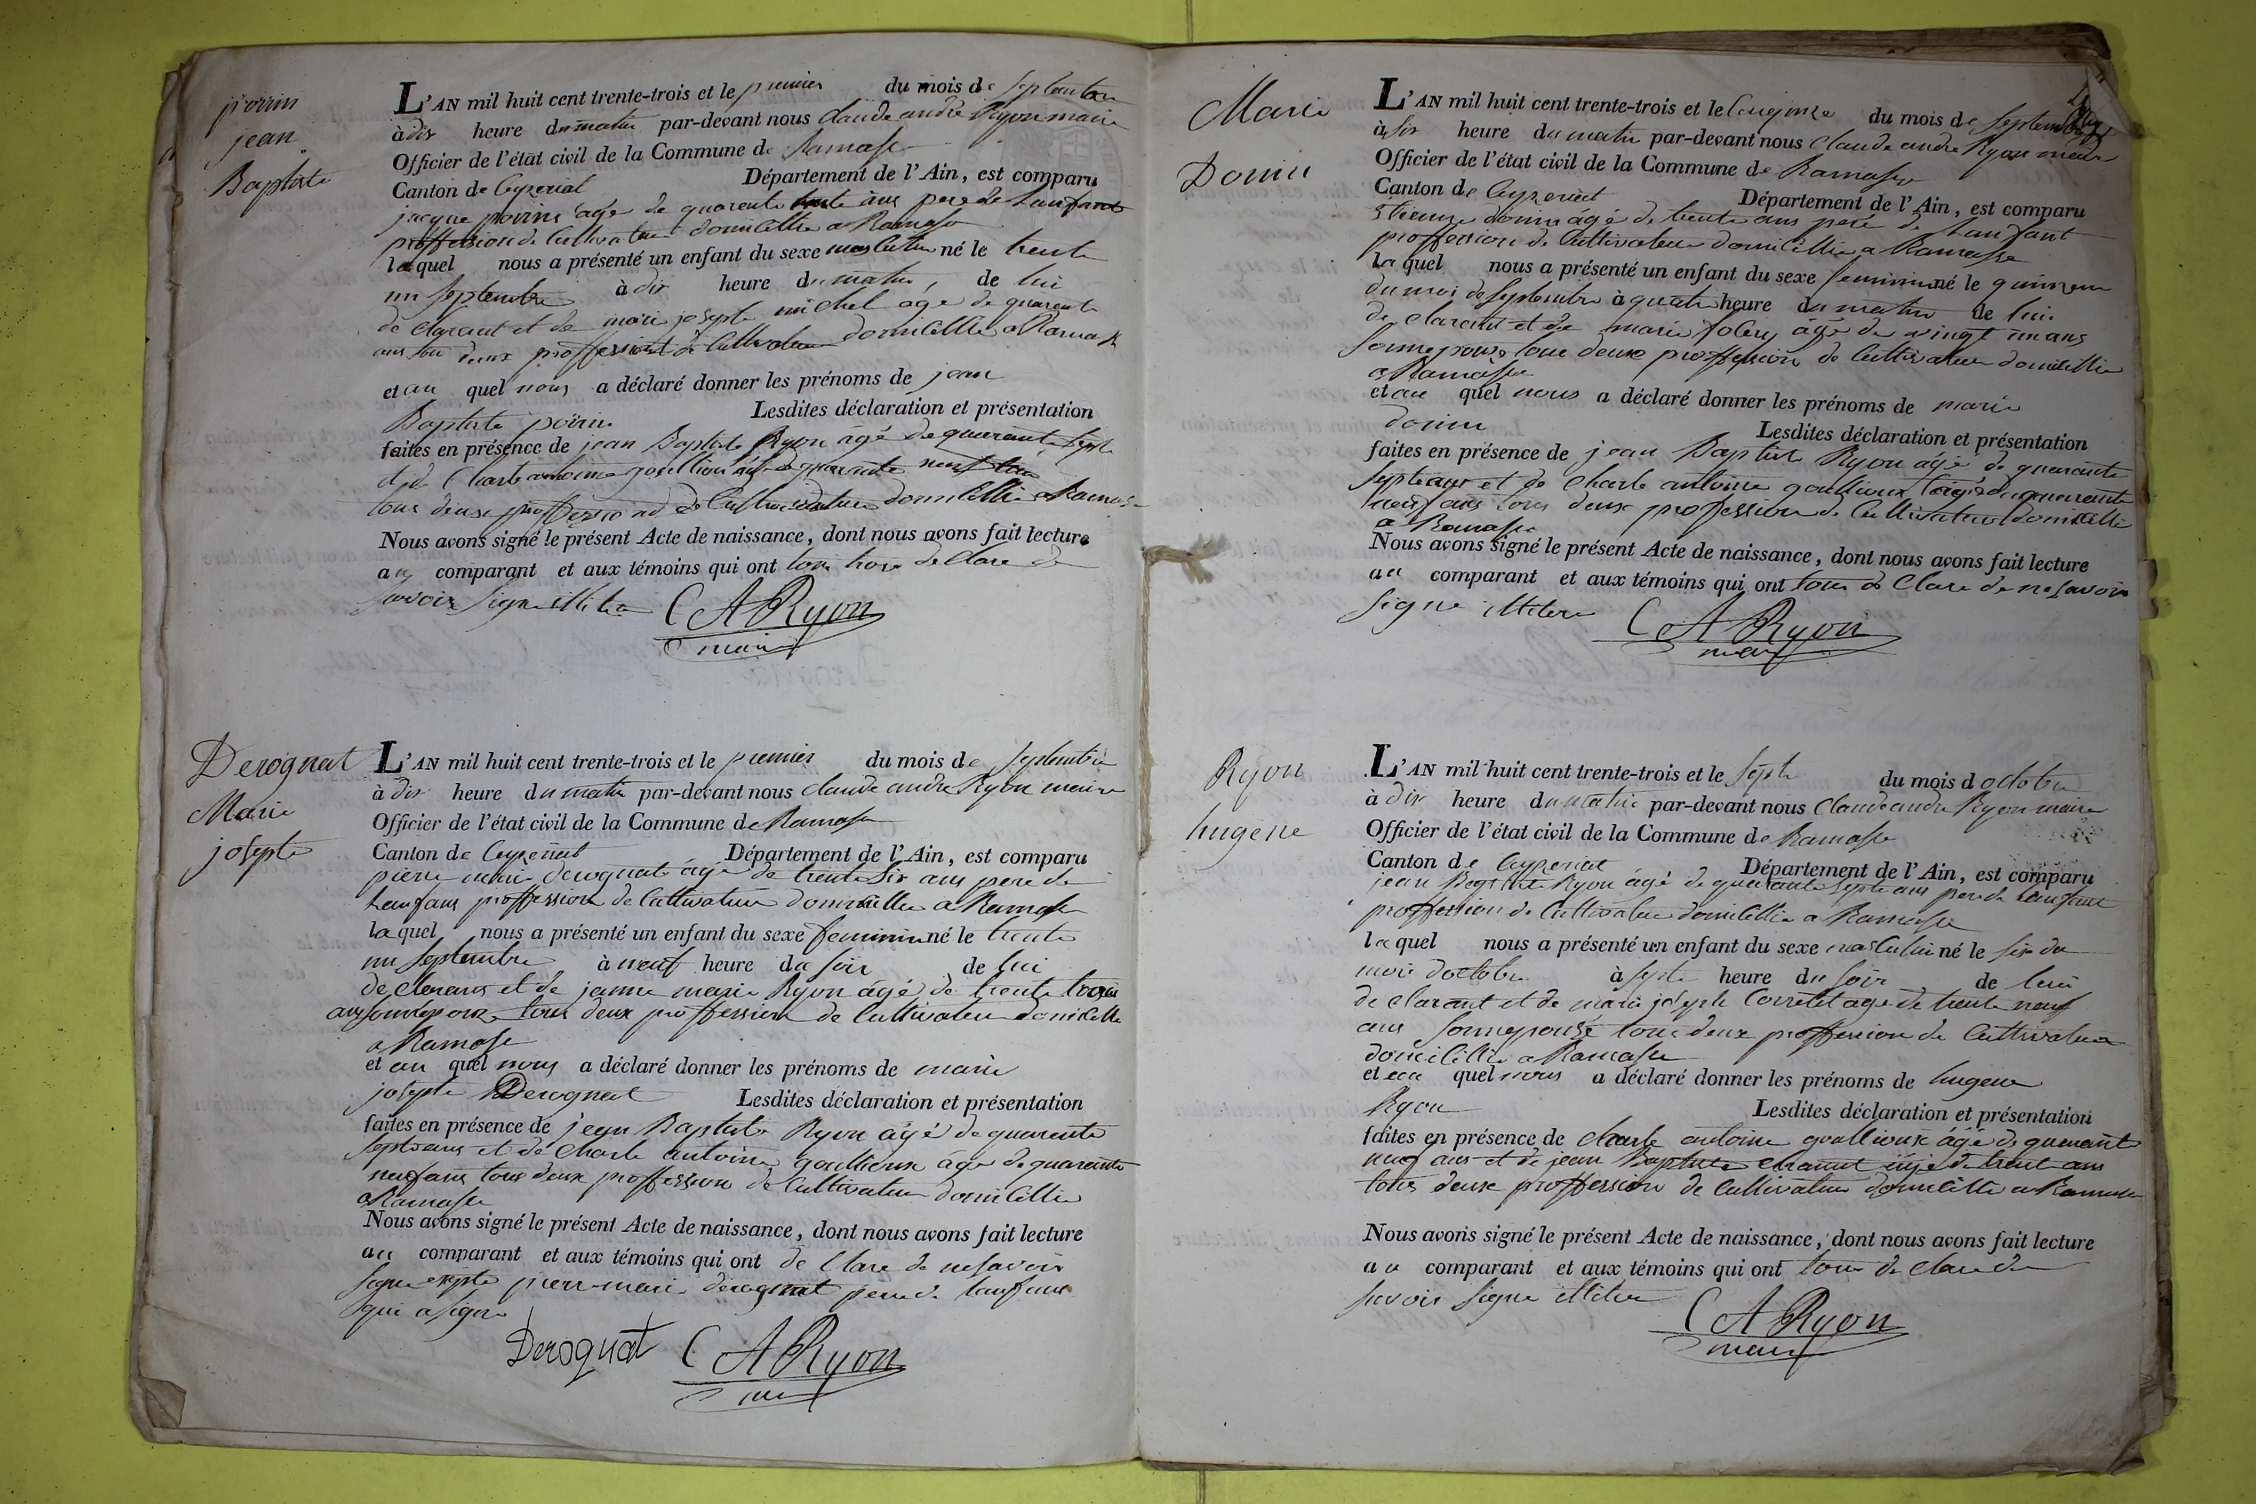 jean
Baptiste
L'AN mil huit cent trente-trois et le premier du mois de septembre
à dix heure du matin par-devant nous Claude andré Ryon maire
Officier de l'état civil de la Commune de Ramasse
Canton de Ceyzeriat Département de l'Ain, est comparu
jacque poirin agé de quarente ans pere de Lanfant
proffession de Cultivateur domicillie a Ramasse
lequel nous a présenté un enfant du sexe masculin né le trente
un septembre à dix heure du matin, de lui
de clarant et de marie josepte michel age de quarente
ans tou deux proffession de Cultivateur domicillie a Ramasse
et au quel nous a déclaré donner les prénoms de jean
Baptiste poirin Lesdites déclaration et présentation
faites en présence de jean Baptiste Ryon âgé de quarente sept
et de Charle antoine agé de quarante neuf
tous deux proffession de Cultivateur domicillie a Ramasse
Nous avons signé le présent Acte de naissance, dont nous avons fait lecture
au comparant et aux témoins qui ont tous de Clare de
savoir signe
C A Ryon
maire
Derognat
Marie
josepte
L'AN mil huit cent trente-trois et le premier du mois de septembre
à dix heure du matin par-devant nous Claude andre Ryon maire
Officier de l'état civil de la Commune de Ramasse
Canton de Ceyzeriat Département de l'Ain, est comparu
pierre marie derognat âgé de trente six ans pere de
Lanfans proffession de Cultivateur domicillie a Ramasse
laquel nous a présenté un enfant du sexe feminin né le trente
un septembre à neuf heure du soir de lui
de clarans et de janne marie Ryon âgé de trente trois
ans son epouze tous deux proffession de Cultivateur domicille
a Ramasse
et au quel nous a déclaré donner les prénoms de marie
josepte Derognat Lesdites déclaration et présentation
faites en présence de jean Baptiste Ryon âgé de quarente
sept ans et de Charle antoine goullioux âge de quarente
neuf ans tous deux proffession de Cultivateur domicillie
a Ramasse
Nous avons signé le présent Acte de naissance, dont nous avons fait lecture
au comparant et aux témoins qui ont de Clare de ne savoir
signe exepte pierre marie derognat pere de lanfans
qui a signe
Derognat C A Ryon
Marie
L'AN mil huit cent trente-trois et le du mois de septembre
à six heure du matin par-devant nous Claude andre Ryon maire
Officier de l'état civil de la Commune de Ramasse
Canton de Ceyzeriat Département de l'Ain, est comparu
âgé de trente ans pere de Lanfant
proffession de Cultivateur domicillie a Ramasse
laquel nous a présenté un enfant du sexe feminin né le
du moi de septembre à quatre heure du matin de lui
de clarant et de marie âgé de vingt un ans
son epouze tous deux proffession de Cultivateur domicillie
a Ramasse
et au quel nous a déclaré donner les prénoms de marie
Lesdites déclaration et présentation
faites en présence de jean Baptiste Ryon âgé de quarante
sept ans et de Charle antoine goullioux âgé de quarante
neuf ans tous deux proffession de Cultivateur domicillie
a Ramasse
Nous avons signé le présent Acte de naissance, dont nous avons fait lecture
au comparant et aux témoins qui ont tous de Clare de ne savoir
signe
C A Ryon
maire
Ryon
hugene
L'AN mil huit cent trente-trois et le septe du mois d octobre
à dix heure du matin par-devant nous Claude andre Ryon maire
Officier de l'état civil de la Commune de Ramasse
Canton de Ceyzeriat Département de l'Ain, est comparu
jean Baptiste Ryon âgé de quarante septe ans pere de Lanfant
proffession de Cultivateur domicillie a Ramasse
lequel nous a présenté un enfant du sexe masculin né le six du
moi doctobre à septe heure du soir de lui
de clarant et de marie josepte Corretet age de trente neuf
ans son epouse tous deux proffession de Cultivateur
domicillie a Ramasse
et au quel nous a déclaré donner les prénoms de hugene
Ryon Lesdites déclaration et présentation
faites en présence de Charle antoine goullioux âgé de quarente
neuf ans et de jean Baptiste âgé de trente ans
tous deux proffession de Cultivateur domicillie a Ramasse
Nous avons signé le présent Acte de naissance, dont nous avons fait lecture
au comparant et aux témoins qui ont tous de Clare de
savoir signe
C A Ryon
maire